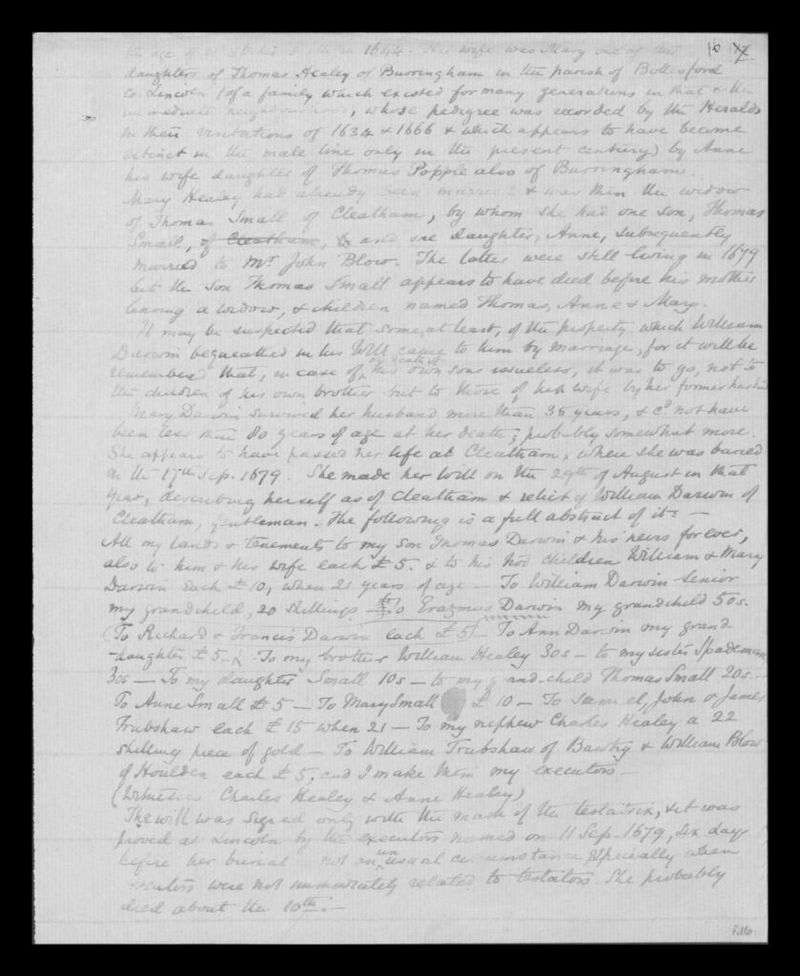 16
age of 1644. His wife was Mary one of the
daughters of Thomas Healey of Burringham in the parish of Bottesford
Co. Lincoln (of a family which existed for many generations in that & the
immediate neighbourhood, whose pedigree was recorded by the Heralds
in their visitations of 1634 & 1666 & which appears to have become
extinct in the male line only in the present century) by Anne
his wife daughter of Thomas Popple also of Burringham.
Mary Healey had already been married & was then the widow
of Thomas Small of Cleatham, by whom she had one son, Thomas
Small, of Cleatham, & and one daughter, Anne, subsequently
married to Mr. John Blow. The latter were still living in 1679
but the son Thomas Small appears to have died before his mother
leaving a widow, & children named Thomas, Anne & Mary.
It may be suspected that some, at least, of the property which William
Darwin bequeathed in his Will came to him by marriage, for it will be
remembered that, in case of his own sons issueless, it was to go, not to
the children of his own brother but to those of his wife by her former husband
Mary Darwin survived her husband more than 35 years, & cd. not have
been less than 80 years of age at her death; probably somewhat more.
She appears to have passed her life at Cleatham, where she was buried
on the 17th Sep. 1679. She made her Will on the 29th of August in that
year, describing herself as of Cleatham & relict of William Darwin of
Cleatham, Gentleman. The following is a full abstract of it: —
All my lands & tenements to my son Thomas Darwin & his heirs for ever,
also to him & his wife each £5. & to his two children William & Mary
Darwin each £10, when 21 years of age — To William Darwin Senior
my grandchild, 20 shillings — To Erazmus Darwin my grandchild 50s.
To Richard & Francis Darwin each £5 — To Ann Darwin my grand
-daughter £5 — To my brother William Healey 30s — to my sister Spademan
30s — To my daughter Small 10s — to my grand-child Thomas Small 20s. —
To Anne Small £5 — To Mary Small £10 — To Samuel, John & James
Trubshaw each £15 when 21 — To my nephew Charles Healey a 22
shilling piece of gold — To William Trubshaw of Bawtry & William Blow
of Houlden each £5, and I make them my executors —
(Witnesses Charles Healey & Anne Healey)
The will was signed only with the mark of the testatrix, & it was
proved at Lincoln by the executors named on 11 Sep. 1679, six days
before her burial, not an unusual circumstance, especially when
executors were not immediately related to testators. She probably
died about the 10th. —
F.16